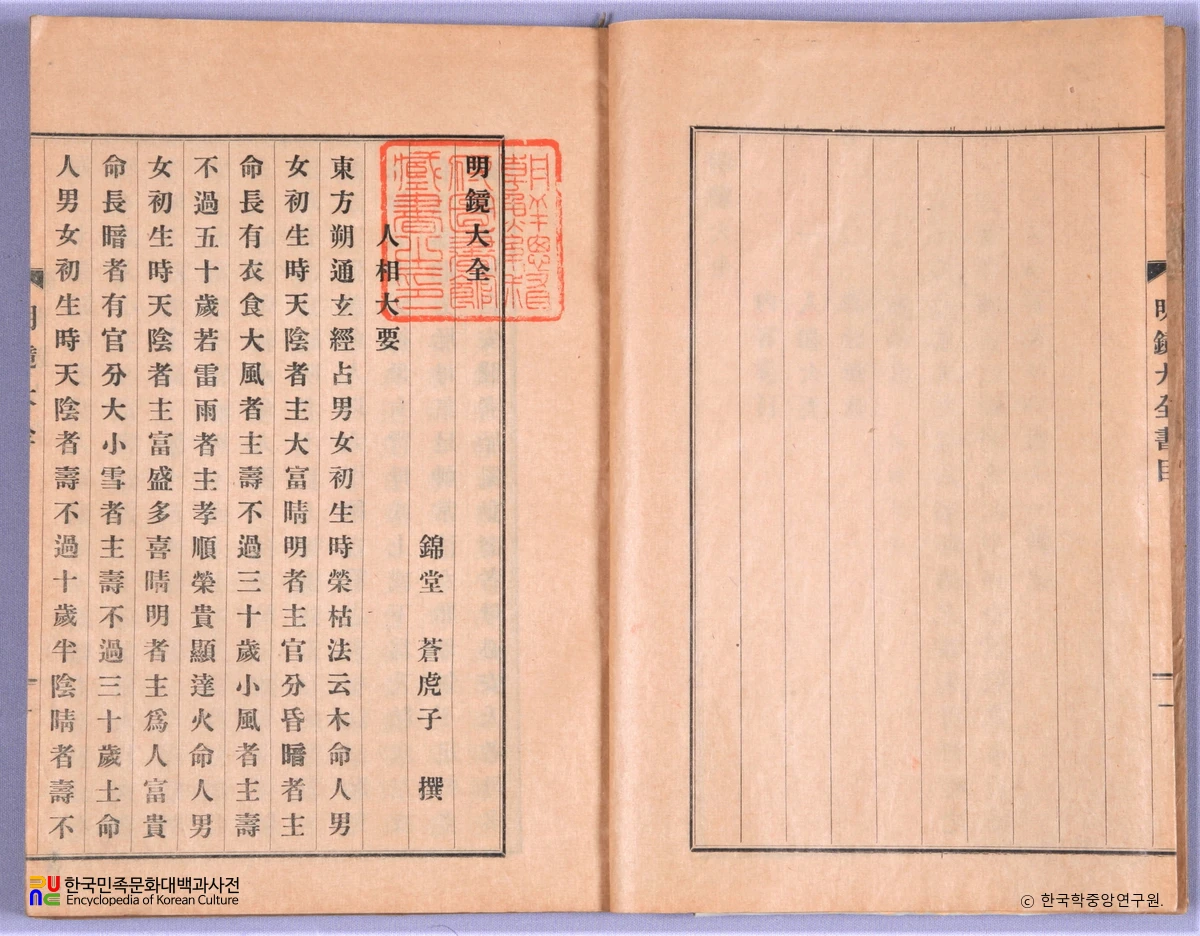 明鏡大全書目
明鏡大全
錦堂 蒼虎子 撰
人相大要
東方朔通玄經占男女初生時榮枯法云木命人男
女初生時天陰者主大富晴明者主官分昏暗者主
命長有衣食大風者主壽不過三十歲小風者主壽
不過五十歲若雷雨者主孝順榮貴顯達火命人男
女初生時天陰者主富盛多喜晴明者主爲人富貴
命長暗者有官分大小雪者主壽不過三十歲土命
人男女初生時天陰者壽不過十歲半陰晴者壽不
한국민족문화대백과사전
Encyclopedia of Korean Culture
© 한국학중앙연구원.